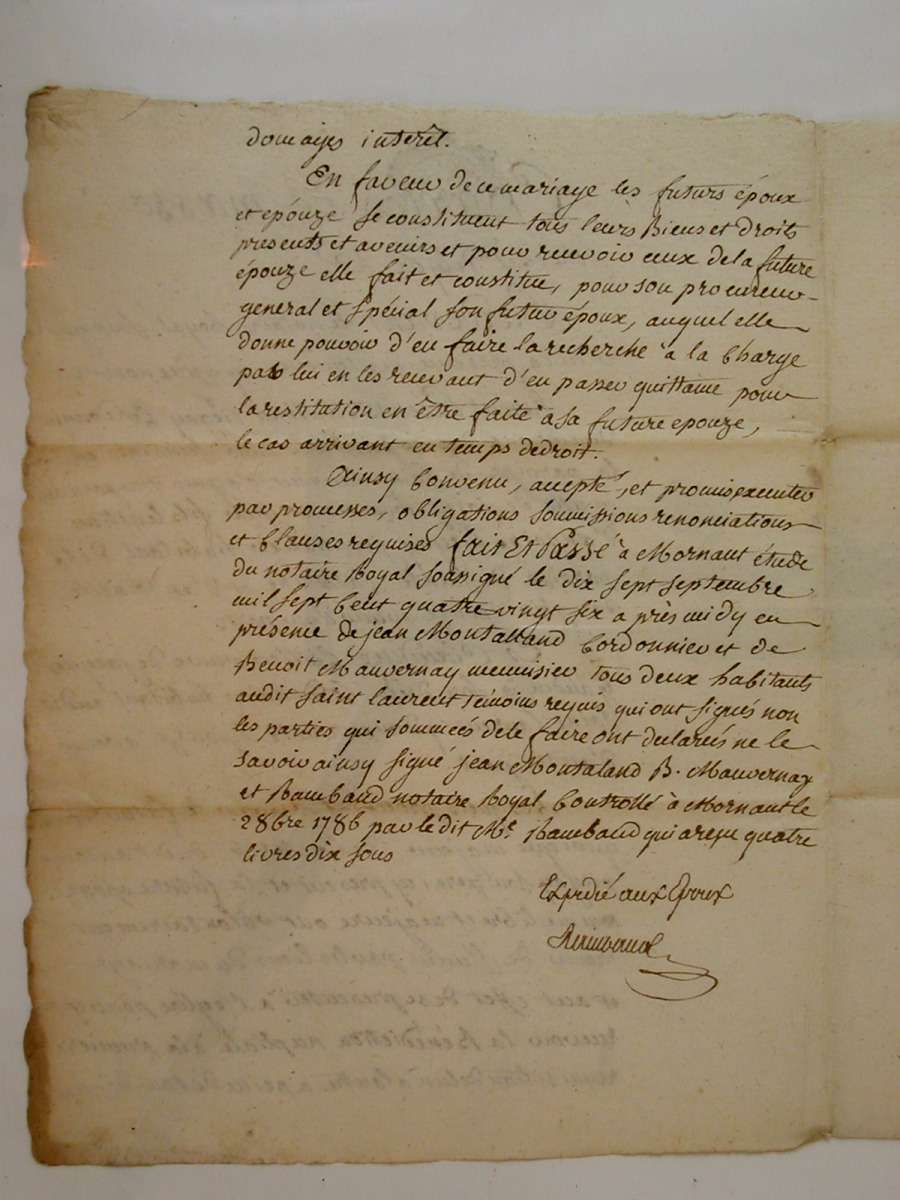 domages interêt.
En faveur de ce mariage les futurs époux
et epóuze se constituent tous leurs Biens et droits
presents et avenirs et pour recevoir ceux de la future
épouze elle fait et constitue, pour son procureur
general et spécial son futur époux, auquel elle
donne pouvoir d'en faire la recherche à la Charge
par lui en les recevant d'en passer quittance pour
la restitution en être faite à sa future epouze,
le cas arrivant en temps de droit.
Ainsy Convenu, accepté, et promis executer
par promesses, obligations soumissions renonciations
et Clauses requises fait Et Passé à Mornant étude
du notaire Royal soussigné le dix sept septembre
mil sept Cent quatre vingt six après midy en
présence de jean Montalland Cordonnier et de
Benoit Mauvernay menuisier tous deux habitants
audit saint laurent témoins requis qui ont signés non
les parties qui sommées de le faire ont declarés ne le
savoir ainsy signé jean Montaland B. Mauvernay
et Raimbaud notaire Royal Controllé à Mornant le
28bre 1786 par le dit Me. Raimbaud qui a reçu quatre
livres dix sous
Expedié aux Epoux
Raimbaud